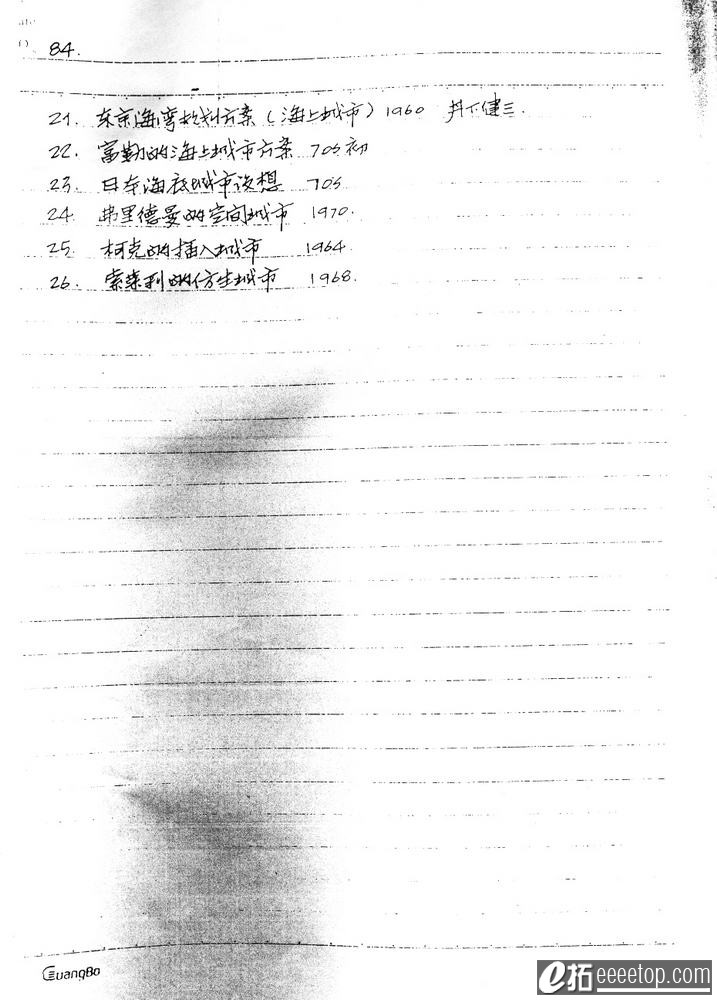 84.
21. 东京海湾规划方案（海上城市）1960 丹下健三.
22. 富勒的海上城市方案 70s初
23. 日本海底城市设想 70s
24. 弗里德曼的空间城市 1970.
25. 柯克的插入城市 1964
26. 索莱利的仿生城市 1968.
GuangBo
e拓eeeetop.com